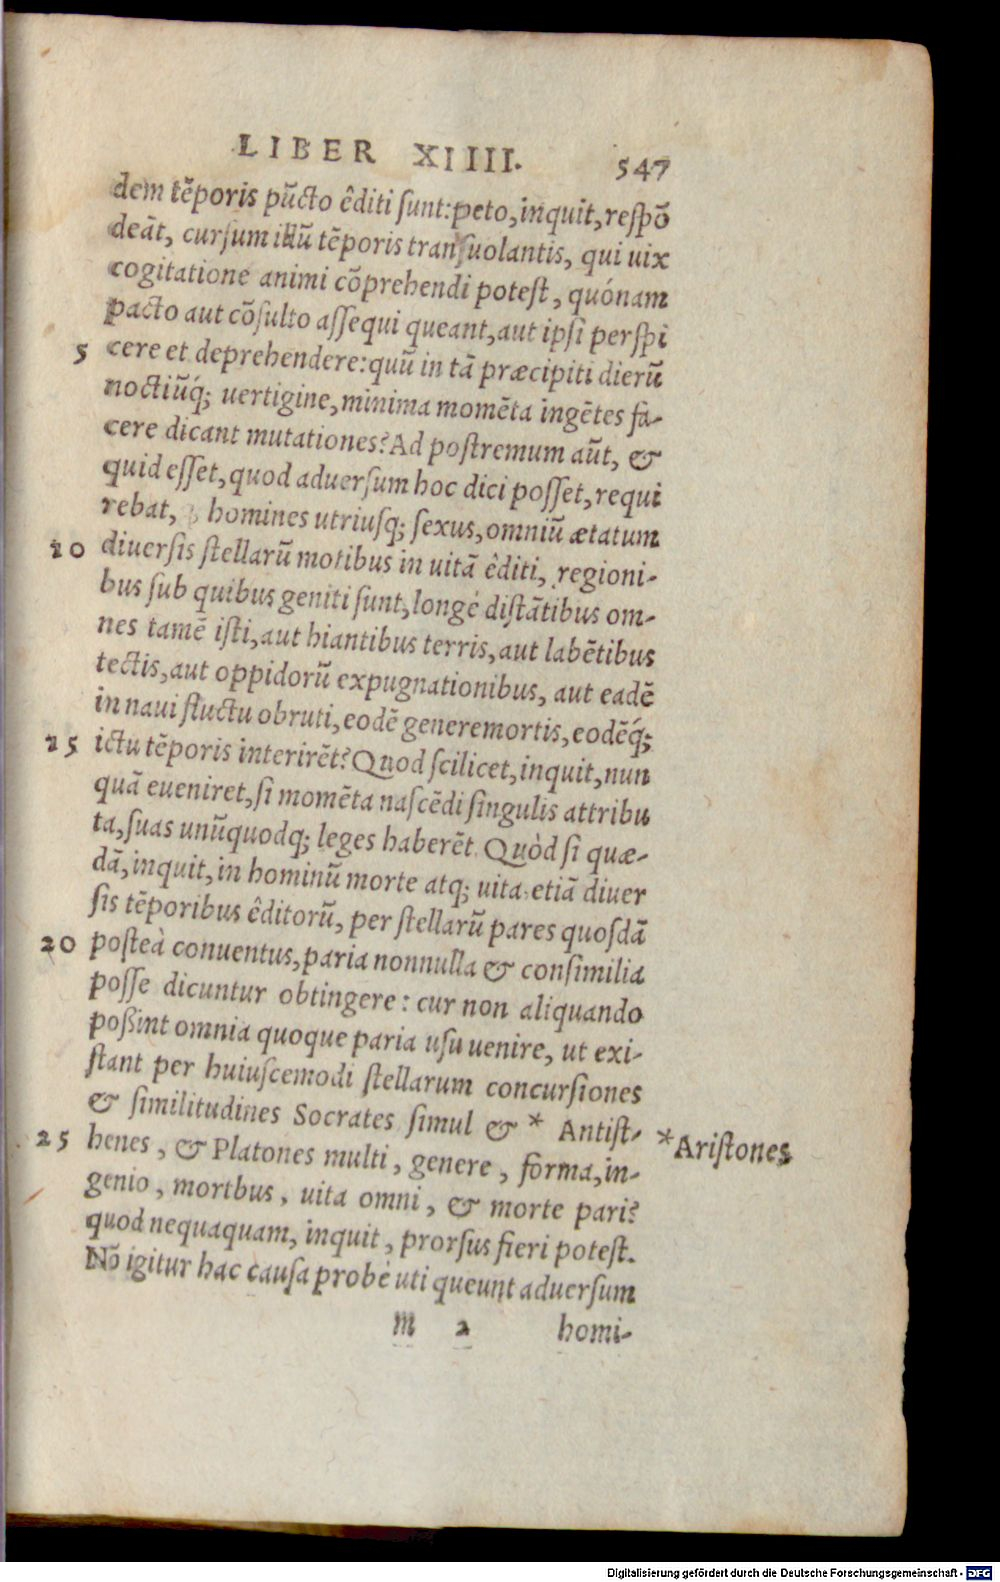 LIBER XIIII. 547
dem tẽporis pũcto êditi ſunt: peto, inquit, reſpõ
deãt, curſum illũ tẽporis tranſuolantis, qui uix
cogitatione animi cõprehendi poteſt, quónam
pacto aut cõſulto aſſequi queant, aut ipſi perſpi
5 cere et deprehendere: quũ in tã præcipiti dierũ
noctiũq́; uertigine, minima momẽta ingẽtes fa-
cere dicant mutationes? Ad poſtremum aũt, &
quid eſſet, quod aduerſum hoc dici poſſet, requi
rebat, homines utriuſq; ſexus, omniũ ætatum
10 diuerſis ſtellarũ motibus in uitã êditi, regioni-
bus ſub quibus geniti ſunt, longé diſtãtibus om-
nes tamẽ iſti, aut hiantibus terris, aut labẽtibus
tectis, aut oppidorũ expugnationibus, aut eadẽ
in naui fluctu obruti, eodẽ genere mortis, eodẽq́;
25 ictu tẽporis interirẽt? Quod ſcilicet, inquit, nun
quã eueniret, ſi momẽta naſcẽdi ſingulis attribu
ta, ſuas unũquodq; leges haberẽt. Quòd ſi quæ-
dã, inquit, in hominũ morte atq; uita etiã diuer
ſis tẽporibus êditorũ, per ſtellarũ pares quoſdã
20 poſteà conuentus, paria nonnulla & conſimilia
poſſe dicuntur obtingere: cur non aliquando
poßint omnia quoque paria uſu uenire, ut exi-
ſtant per huiuſcemodi ſtellarum concurſiones
& ſimilitudines Socrates ſimul & * Antiſt- *Ariſtones
25 henes, & Platones multi, genere, forma, in-
genio, moribus, uita omni, & morte pari?
quod nequaquam, inquit, prorſus fieri poteſt.
Nõ igitur hac cauſa probè uti queunt aduerſum
m 2 homi-
Digitalisierung gefördert durch die Deutsche Forschungsgemeinschaft - DFG